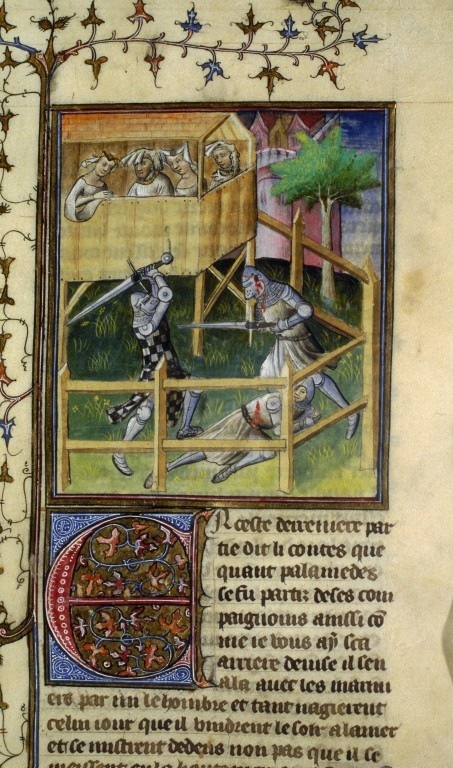 En ceste derreniere par
tie dit li contes que
quant palamedes
se fu partiz de ses com
paignons ainssi cō
me ie vous ay sca
arriere devise il sen
ala avec les marini
ers par un le hombre et tant nagierent
celui iour que il vindrent le soir a la mer
et se mistrent dedens non pas que il se
meissent